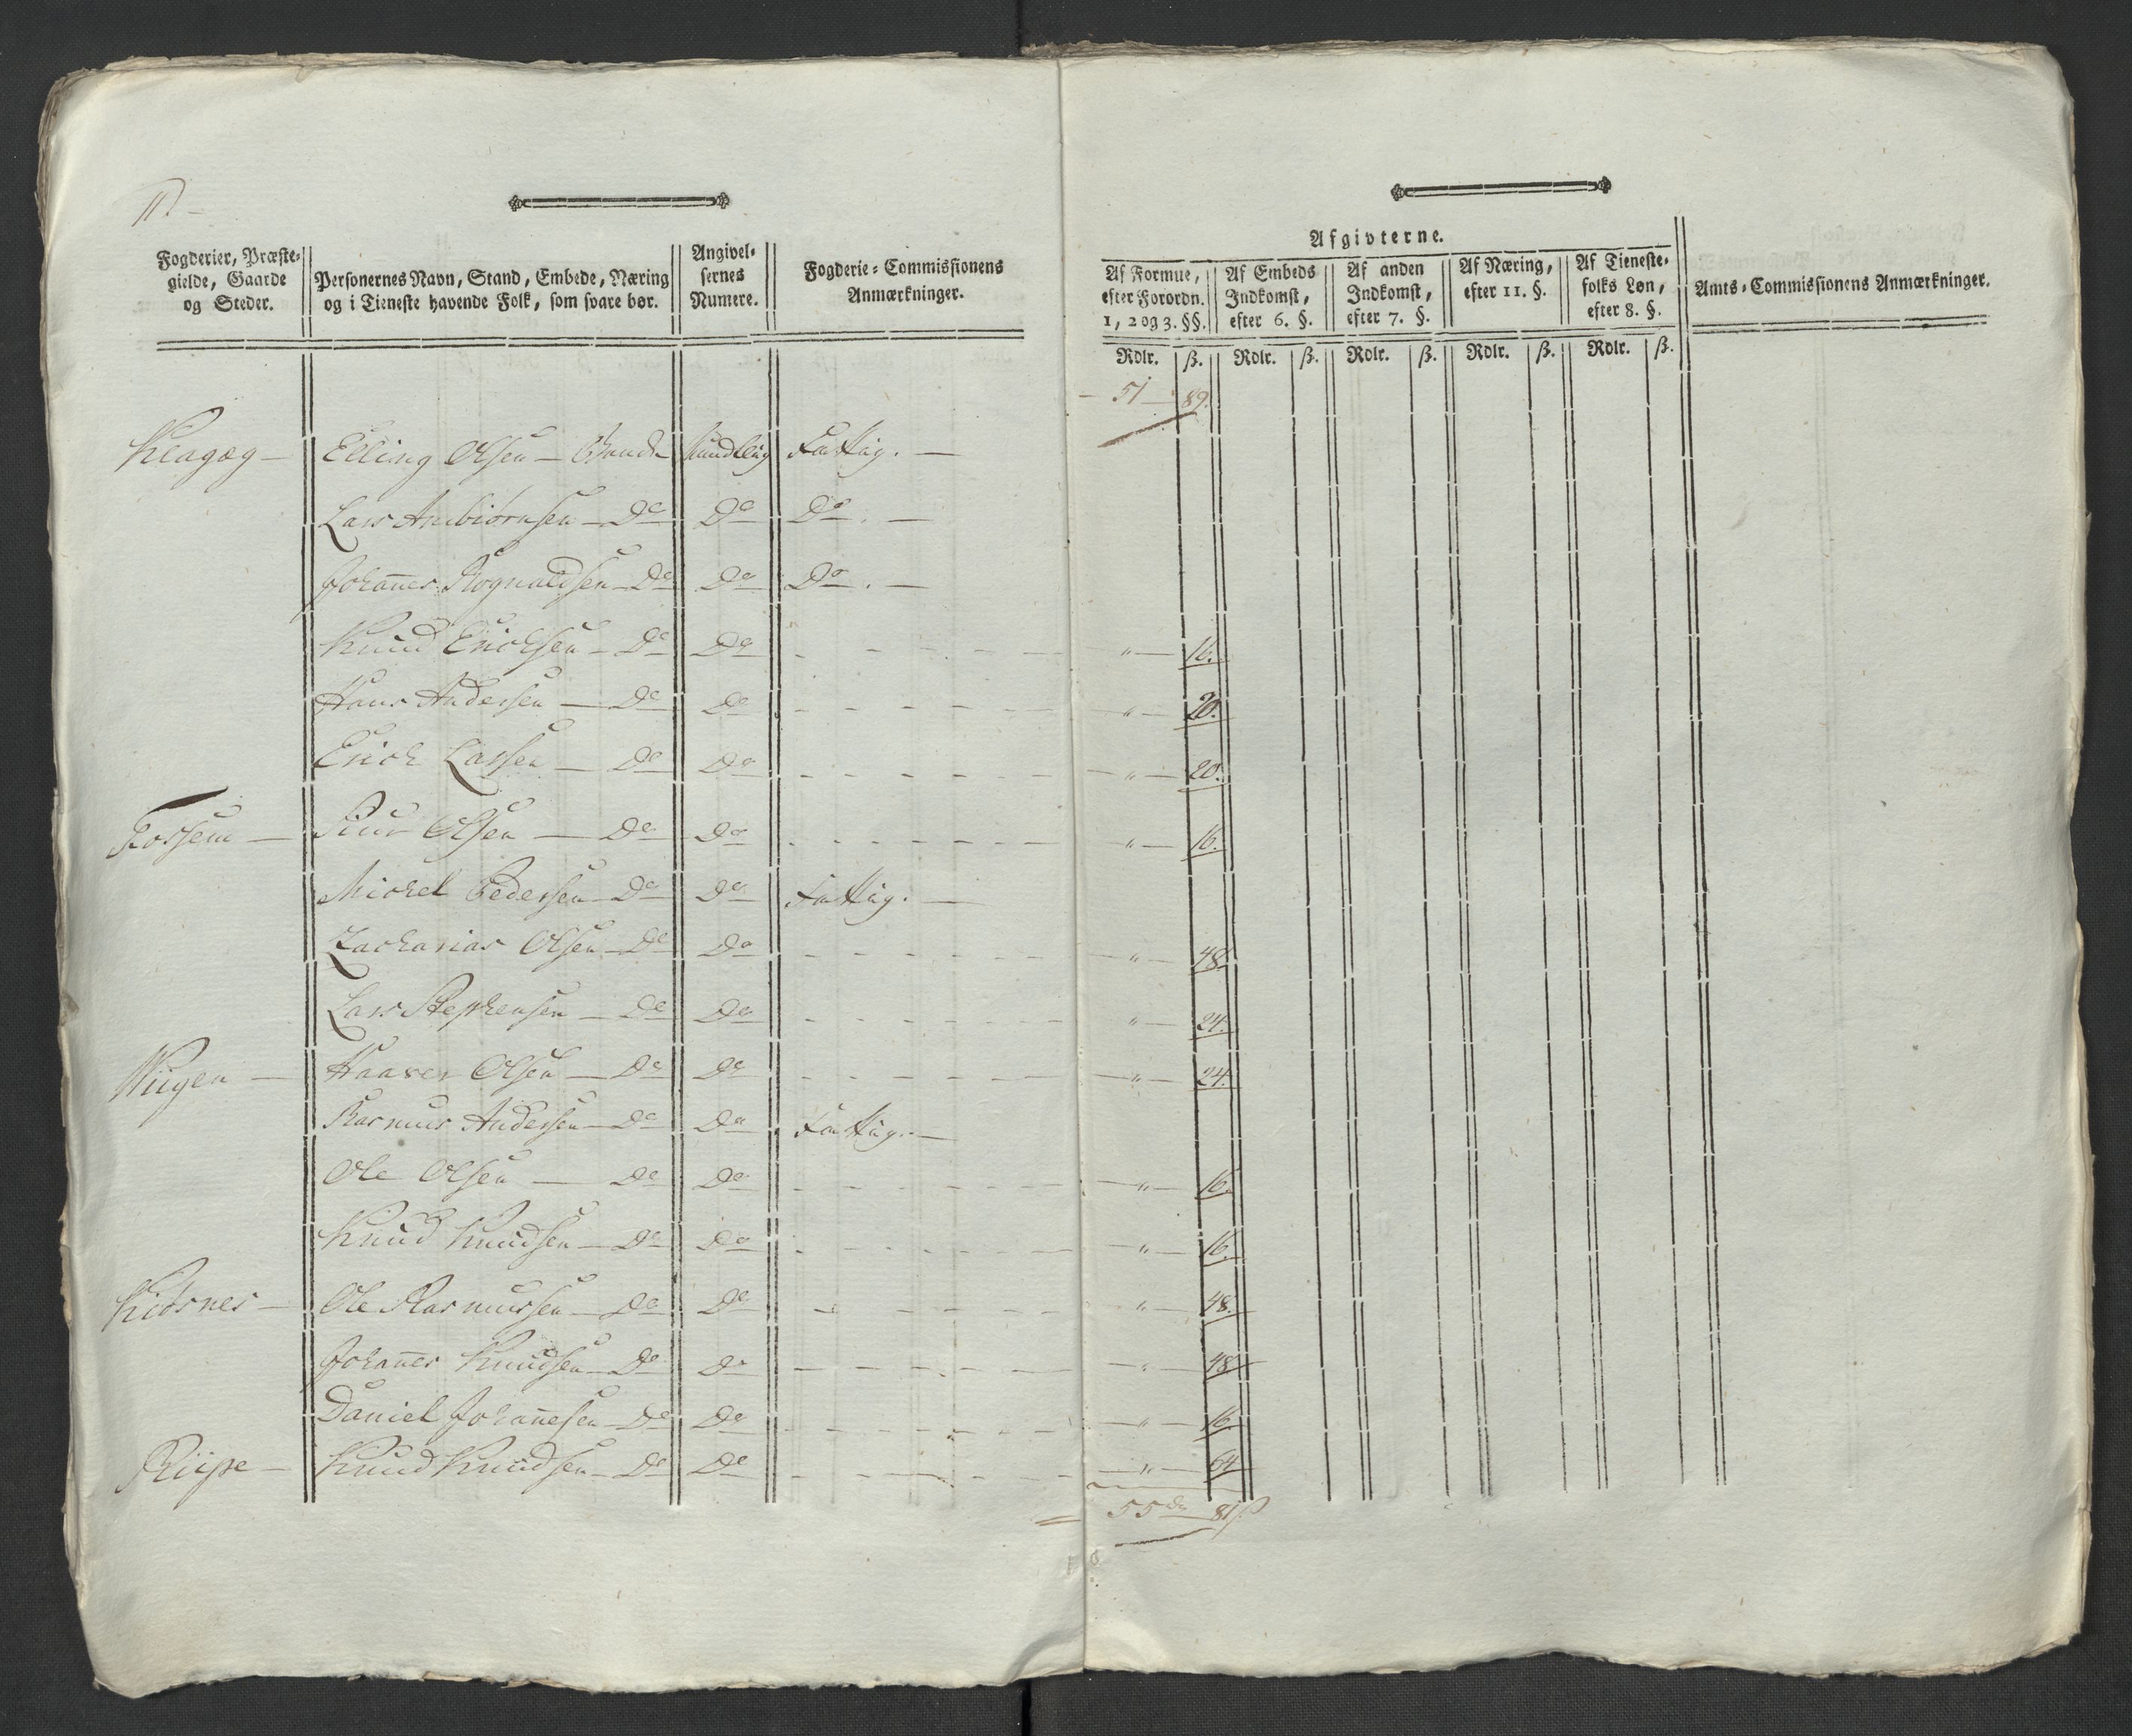 Fogderier, Præste-
gielde, Gaarde
og Steder.
Personernes Navn, Stand, Embede, Næring
og i Tieneste havende Folk, som svare bør.
Angivel-
sernes
Numere.
Fogderie-Commissionens
Anmærkninger.
Afgivterne.
Af Formue,
efter Forordn.
1, 2 og 3. §§.
Af Embeds
Indkomst,
efter 6. §.
Af anden
Indkomst,
efter 7. §.
Af Næring,
efter 11. §.
Af Tieneste-
folks Løn,
efter 8. §.
Amts-Commissionens Anmærkninger.
Rdlr. ß. Rdlr. ß. Rdlr. ß. Rdlr. ß. Rdlr. ß.
51 — 89.
Klagæg — Elling Olsen — Bonde Mundtlig Fattig. —
Lars Ambiörnsen — Do Do Do. —
Johannes Rognaldsen — Do Do Do. —
Knud Erichsen — Do Do " — 16.
Hans Andersen — Do Do " — 20.
Erich Larsen — Do Do — " — 20.
Fossem — Siur Olsen — Do Do " — 16.
Michel Pedersen — Do Do Fattig. —
Zacharias Olsen — Do Do " — 48.
Lars Stephensen — Do Do " — 24.
Wiigen — Haaver Olsen — Do Do — " — 24.
Rasmus Andersen — Do Do Fattig. —
Ole Olsen — Do Do — " — 16.
Knud Knudsen — Do Do " — 16.
Kidsnes — Ole Rasmussen — Do Do " — 48.
Johannes Knudsen — Do Do — " — 48
Daniel Johannesen — Do Do — " — 16
Riipe — Knud Knudsen — Do Do — " — 64
55 dr 81 ß